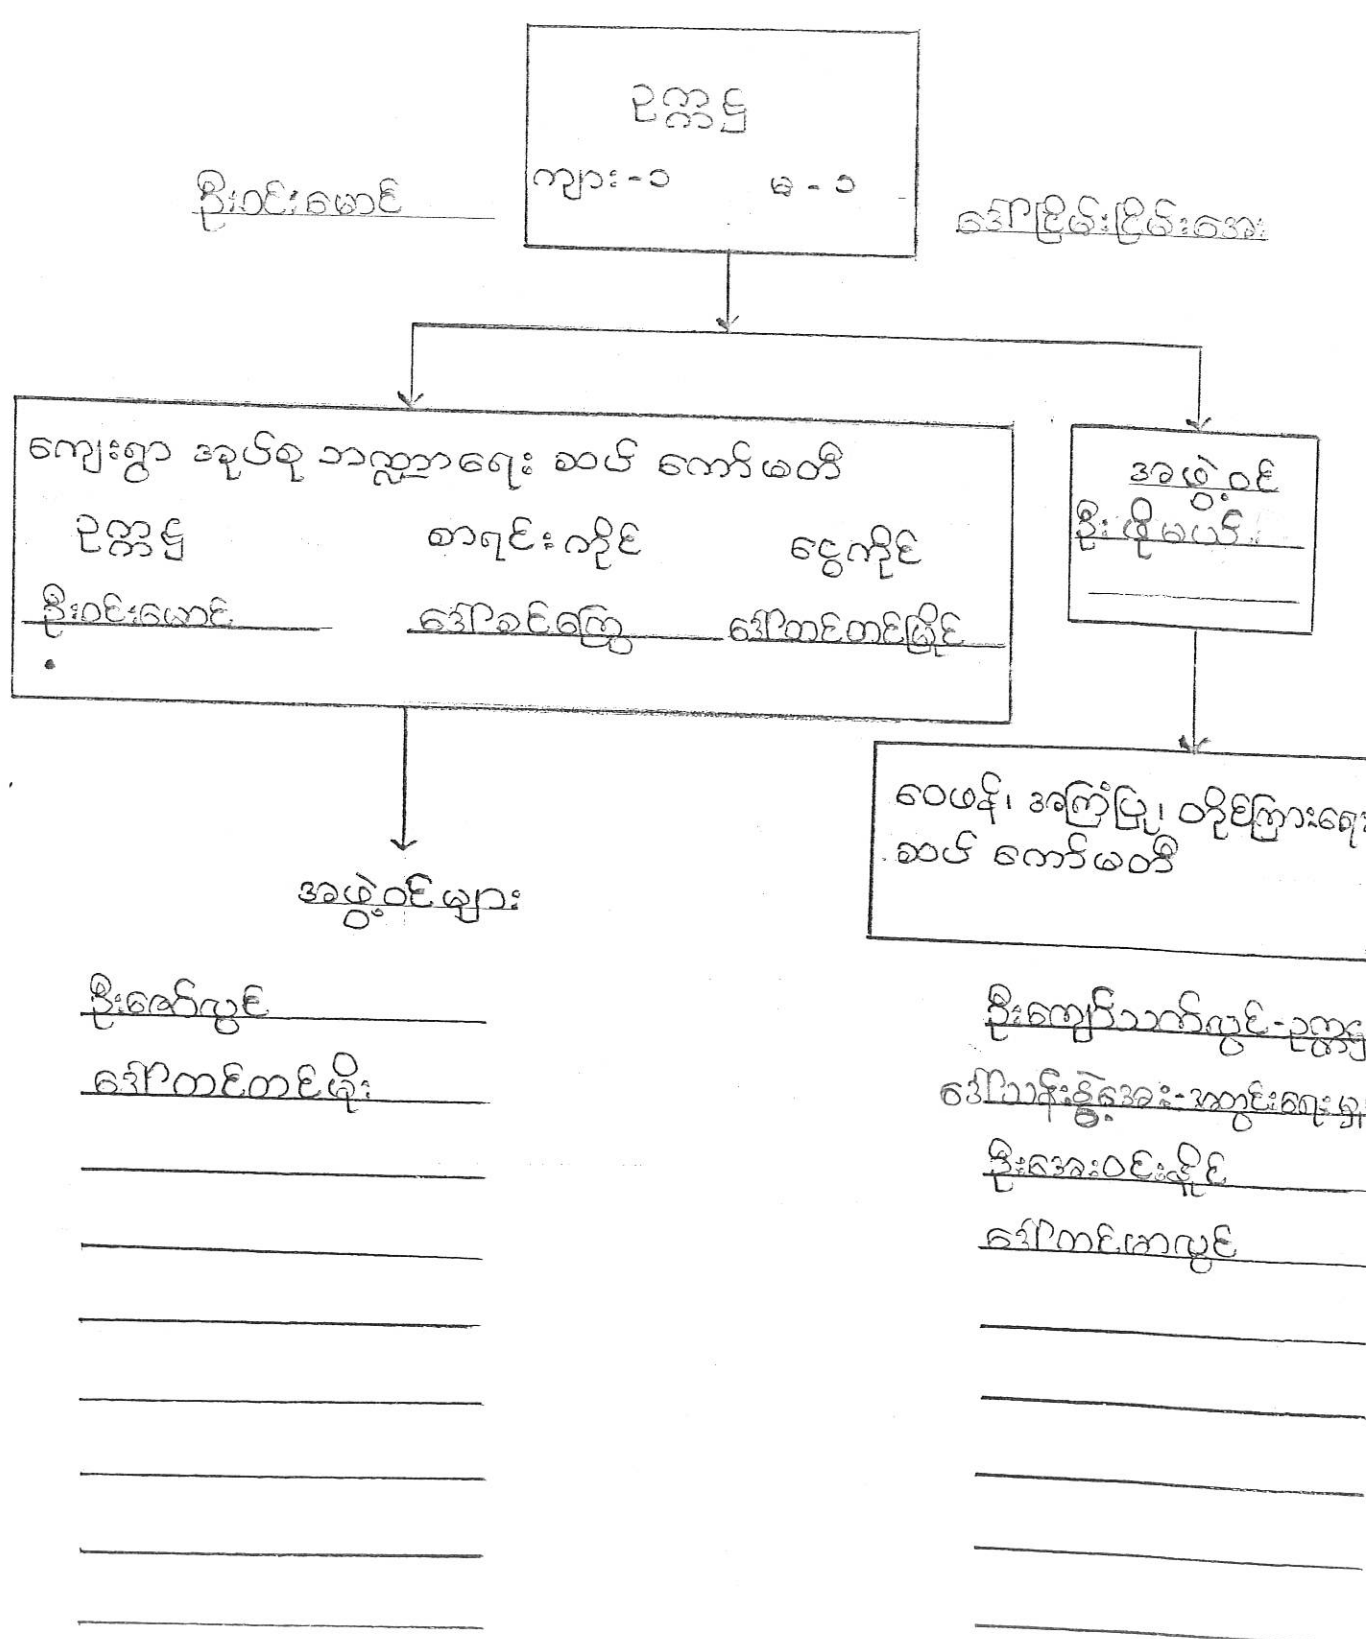 ဥက္ကဋ္ဌ
ကျား-၁ မ-၁
ဦးဝင်းမောင်
ဒေါ်ငြိမ်းငြိမ်းအေး
ကျေးရွာ အုပ်စု ဘဏ္ဍာရေး ဆပ် ကော်မတီ
ဥက္ကဋ္ဌ စာရင်းကိုင် ငွေကိုင်
ဦးဝင်းမောင် ဒေါ်ခင်ကြွေ ဒေါ်တင်တင်မြိုင်
အဖွဲ့ဝင်
ဦးဖိုးမယ်
ဝေဖန်၊ အကြံပြု၊ တိုင်ကြားရေး
ဆပ် ကော်မတီ
အဖွဲ့ဝင်များ
ဦးဇော်လွင်
ဒေါ်တင်တင်မိုး
ဦးကျော်သက်လွင်-ဥက္ကဋ္ဌ
ဒေါ်သန်းနွဲ့အေး-အတွင်းရေးမှူး
ဦးအေးဝင်းနိုင်
ဒေါ်တင်မာလွင်